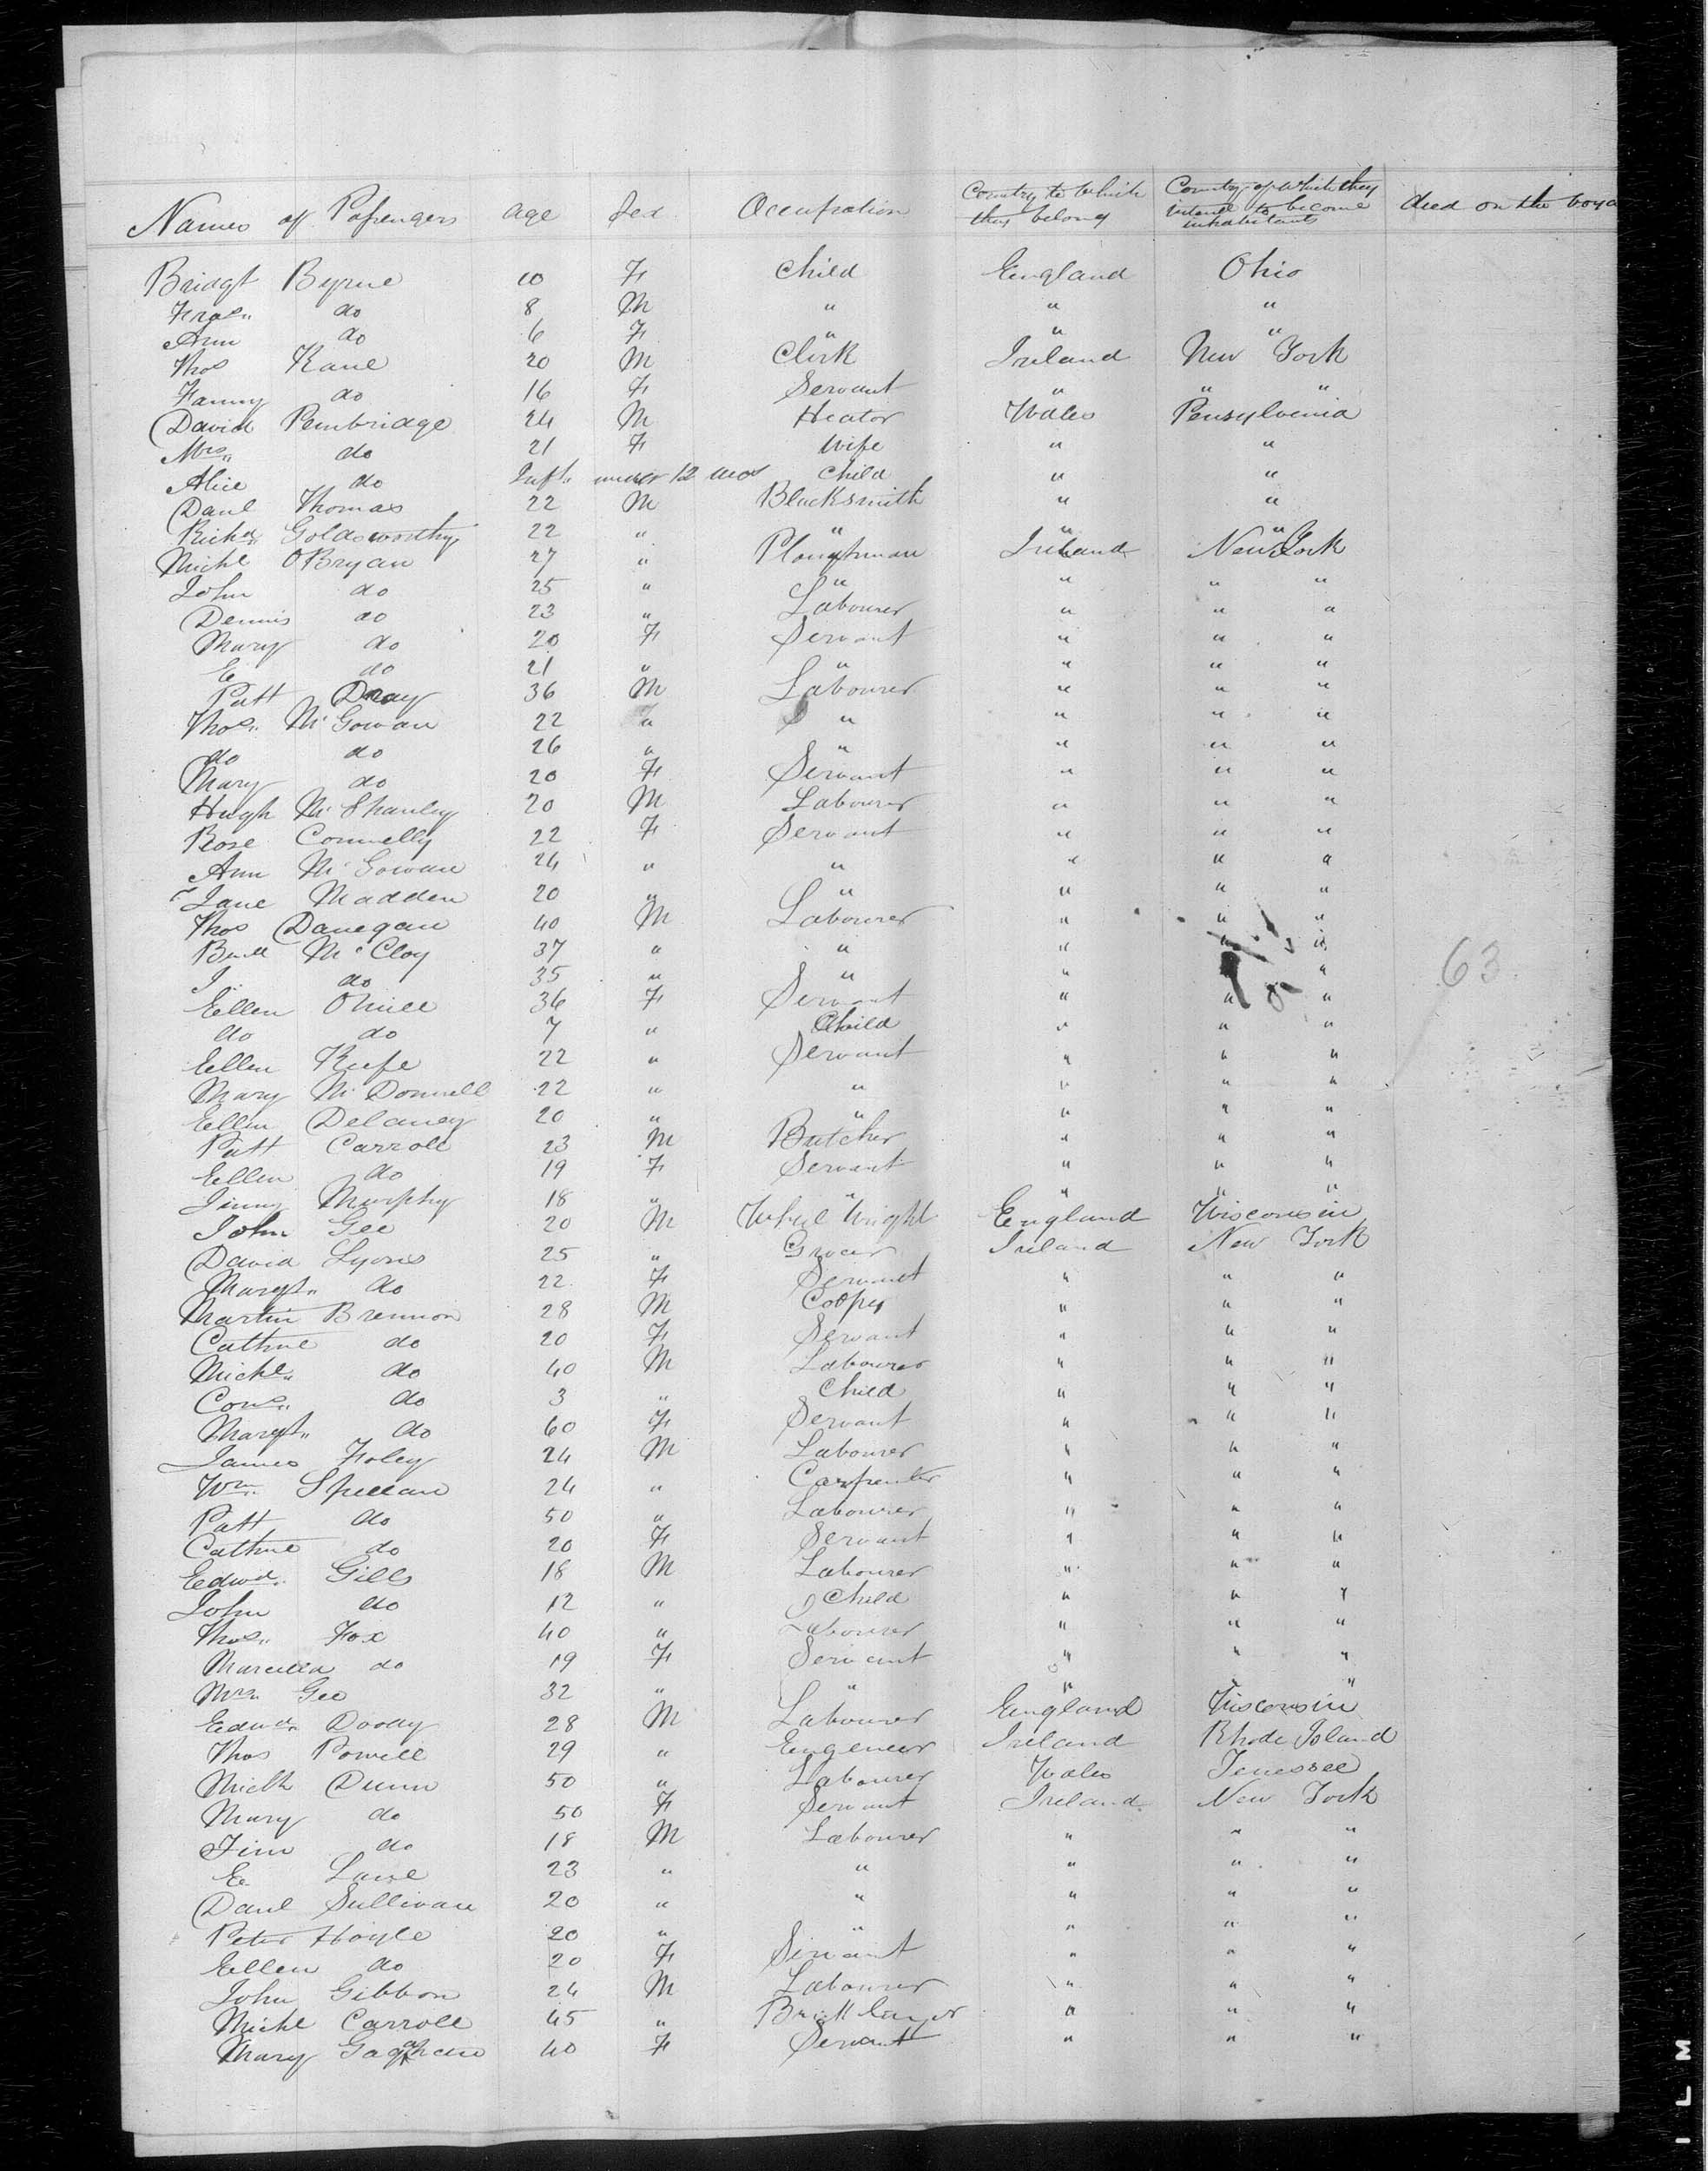 Names of Passengers age Sex Occupation Country to Which they belong Country of Which they intend to become inhabitants died on the voya
Bridgt Byrne 10 F Child England Ohio
Fras" do 8 M " " "
Ann do 6 F " " "
Thos Kane 20 M Clerk Ireland New York
Fanny do 16 F Servant " " "
David Pembridge 24 M Heator Wales Pensylvenia
Mrs" do 21 F Wife " "
Alice do Inft" under 12 mos Child " "
Danl Thomas 22 M Blacksmith " "
Richd" Goldsworthy 22 " " " "
Michl OBryan 27 " Ploughman Ireland New York
John do 25 " " " " "
Dennis do 23 " Labourer " " "
Mary do 20 F Servant " " "
E do 21 " " " " "
Patt Dray 36 M Labourer " " "
Thos" McGowan 22 " " " " "
do do 26 " " " " "
Mary do 20 F Servant " " "
Hugh McShanley 20 M Labourer " " "
Rose Connelly 22 F Servant " " "
Ann McGowan 24 " " " " "
Jane Madden 20 " " " " "
Thos Danegan 40 M Labourer " " "
McCloy 37 " " " " "
J" do 35 " " " " " 63
Ellen ONiell 36 F Servant " " "
do do 7 " Child " " "
Ellen Keefe 22 " Servant " " "
Mary McDonnell 22 " " " " "
Ellen Delaney 20 " " " " "
Patt Carroll 23 M Butcher " " "
Ellen do 19 F Servant " " "
Jinny Murphy 18 " " " " "
John Gee 20 M Wheel Wright England Wisconsin
David Lyons 25 " Grocer Ireland New York
Margt" do 22 F Servant " " "
Martin Brennon 28 M Cooper " " "
Cathne do 20 F Servant " " "
Michl" do 40 M Labourer " " "
Cons" do 3 " Child " " "
Margt" do 60 F Servant " " "
James Foley 24 M Labourer " " "
Wm" Spellan 24 " Carpenter " " "
Patt do 50 " Labourer " " "
Cathne do 20 F Servant " " "
Edwd" Gills 18 M Labourer " " "
John do 12 " Child " " "
Thos" Fox 40 " Labourer " " "
Marcella do 19 F Servant " " "
Mrs" Gee 32 " " " "
Edwd" Dooay 28 M Labourer England Wisconsin
Thos Powell 29 " Engeneer Ireland Rhode Island
Michl Dunn 50 " Labourer Wales Tenessee
Mary do 50 F Servant Ireland New York
Tim do 18 M Labourer " " "
E Lane 23 " " " " "
Danl Sullivan 20 " " " " "
Peter Hoyle 20 " " " " "
Ellen do 20 F Servant " " "
John Gibbon 24 M Labourer " " "
Michl Carroll 45 " Bricklayer " " "
Mary 40 F Servant " " "